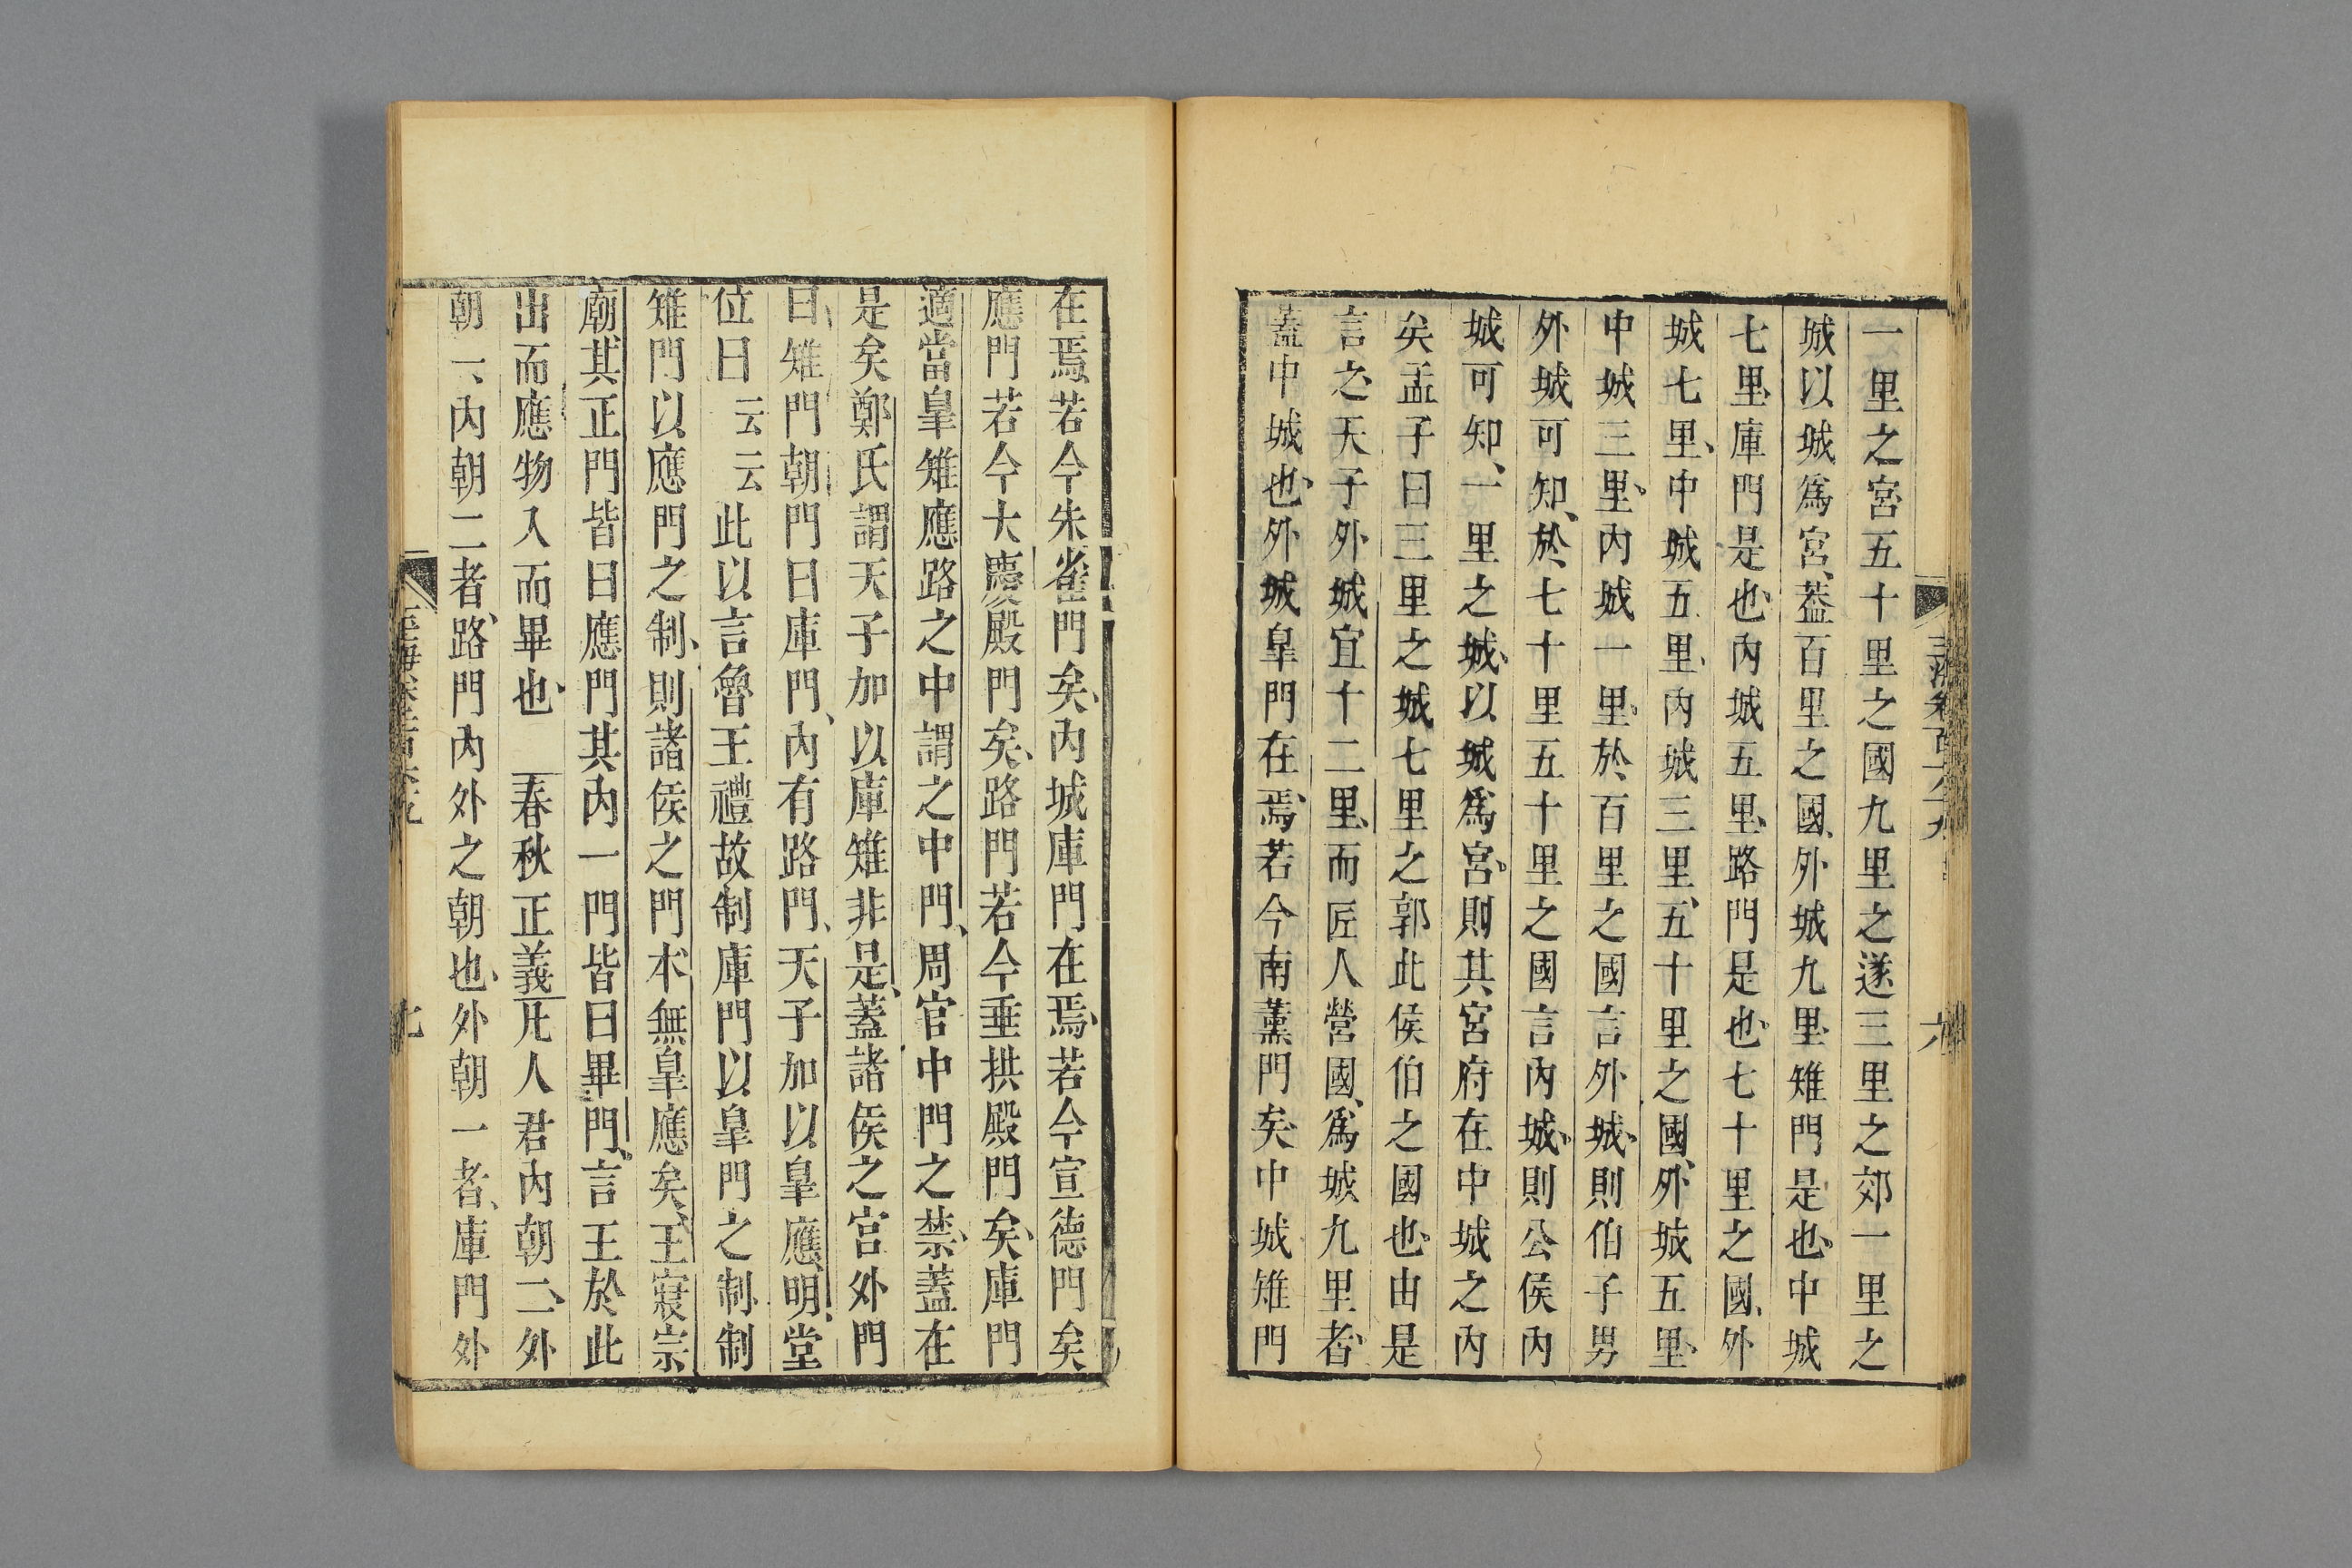 一里之宮五十里之國九里之遂三里之郊一里之
城以城爲宮、葢百里之國、外城九里、雉門是也、中城
七里、庫門是也、内城五里、路門是也、七十里之國、外
城七里、中城五里、内城三里、五十里之國、外城五里、
中城三里、内城一里、於百里之國言外城、則伯子男
外城可知、於七十里五十里之國言内城、則公侯内
城可知、一里之城、以城爲宮、則其宮府在中城之内
矣孟子曰三里之城七里之郭此侯伯之國也、由是
言之、天子外城宜十二里、而匠人營國、爲城九里者、
蓋中城也、外城皐門在焉、若今南薰門矣、中城雉門
在焉、若今朱雀門矣、内城庫門在焉、若今宣德門矣
應門若今大慶殿門矣、路門若今垂拱殿門矣、庫門
適當皐雉應路之中謂之中門、周官中門之禁、蓋在
是矣鄭氏謂天子加以庫雉非是、蓋諸侯之宮外門
曰雉門朝門曰庫門、内有路門、天子加以皐應、明堂
位曰云云此以言魯王禮故制庫門以皐門之制、制
雉門以應門之制、則諸侯之門本無皐應矣、王寢宗
廟其正門皆曰應門其内一門皆曰畢門、言王於此
出而應物入而畢也 春秋正義凡人君内朝二、外
朝一、内朝二者、路門内外之朝也、外朝一者、庫門外